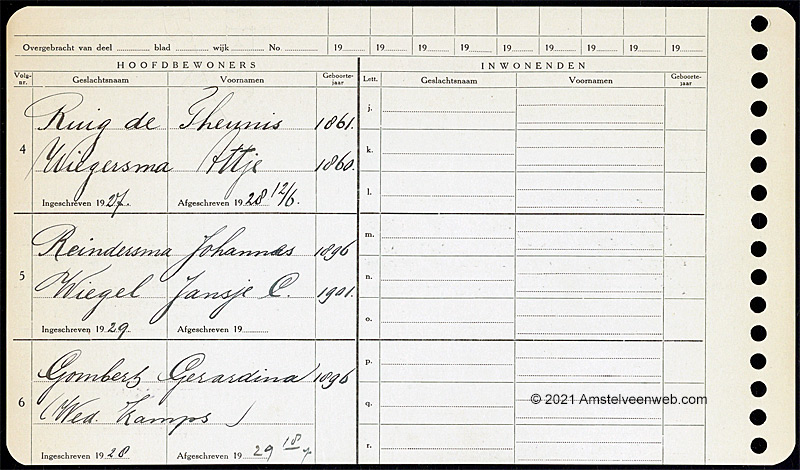 Overgebracht van deel ........ blad ........ wijk ........ No ........ 19...... 19...... 19...... 19...... 19...... 19...... 19...... 19...... 19......
HOOFDBEWONERS
INWONENDEN
Volg-nr. Geslachtsnaam Voornamen Geboorte-jaar
Lett. Geslachtsnaam Voornamen Geboorte-jaar
4
Ruig de Theunis 1861.
Wiegersma Attje 1860.
Ingeschreven 1927. Afgeschreven 1928 12/6.
5
Reindersma Johannes 1896
Wiegel Jansje C. 1901.
Ingeschreven 1929. Afgeschreven 19......
6
Gombert Gerardina 1896
(Wed. Kamps)
Ingeschreven 1928 Afgeschreven 1929 18/7
j.
k.
l.
m.
n.
o.
p.
q.
r.
© 2021 Amstelveenweb.com